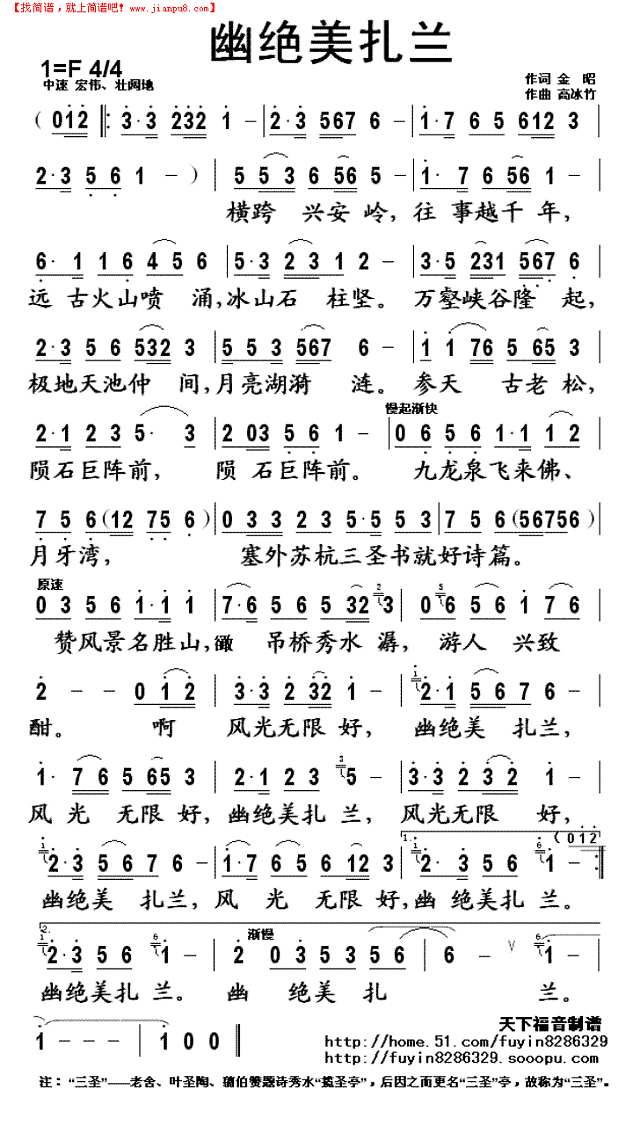 【找简谱，就上简谱吧！www.jianpu8.com】
幽绝美扎兰
1=F 4/4
中速 宏伟、壮阔地
作词 金 昭
作曲 高冰竹
(012 ‖: 3·3 232 1 - | 2·3 567 6 - | 1·7 6 5 612 3 |
2·3 5 6 1 - ) | 5 5 3 6 56 5 - | 1· 7 6 56 1 - |
横跨 兴安 岭，往 事越千 年，
6· 1 1 6 4 5 6 | 5·3 2 3 1 2 - | 3·5 231 567 6 |
远 古火山喷 涌，冰山石 柱坚。万壑峡谷隆 起，
2·3 5 6 532 3 | 5 5 3 567 6 - | 1 1 76 5 65 3 |
极地天池仲 间，月亮湖漪 涟。参天 古老 松，
慢起渐快
2·1 2 3 5· 3 | 2 03 5 6 1 - | 0 6 5 6 1·1 1 2 |
陨石巨阵前， 陨 石巨阵前。 九龙泉飞来佛、
7 5 6 (12 75 6) | 0 3 3 2 3 5·5 5 3 | 7 5 6 (56756) |
月牙湾， 塞外苏杭三圣书就好诗篇。
原速
0 3 5 6 1·1 1 | 7·6 5 6 5 32 3 | 0 6 5 6 1 7 6 |
赞风景名胜山， 吊桥秀水 潺， 游人 兴致
2 - - 0 1 2 | 3·3 2 32 1 - | 2·1 5 6 7 6 - |
酣。 啊 风光无限 好， 幽绝美 扎兰，
1· 7 6 5 65 3 | 2·1 2 3 5 - | 3·3 2 3 2 1 - |
风 光 无限 好，幽绝美扎 兰， 风光无限 好，
1. (012
2·3 5 6 7 6 - | 1·7 6 5 6 12 3 | 2·3 5 6 1 - :‖
幽绝美 扎兰，风 光 无限 好，幽 绝美扎兰。
2. 渐慢
2·3 5 6 1 - | 2 0 3 5 3 5 6 | 6 - V 1 - |
幽绝美扎 兰。 幽 绝美 扎 兰。
1 - - - | 1 0 0 ‖
天下福音制谱
http://home.51.com/fuyin8286329
http://fuyin8286329.sooopu.com
注：“三圣”——老舍、叶圣陶、翦伯赞题诗秀水“揽圣亭”，后因之而更名“三圣”亭，故称为“三圣”。